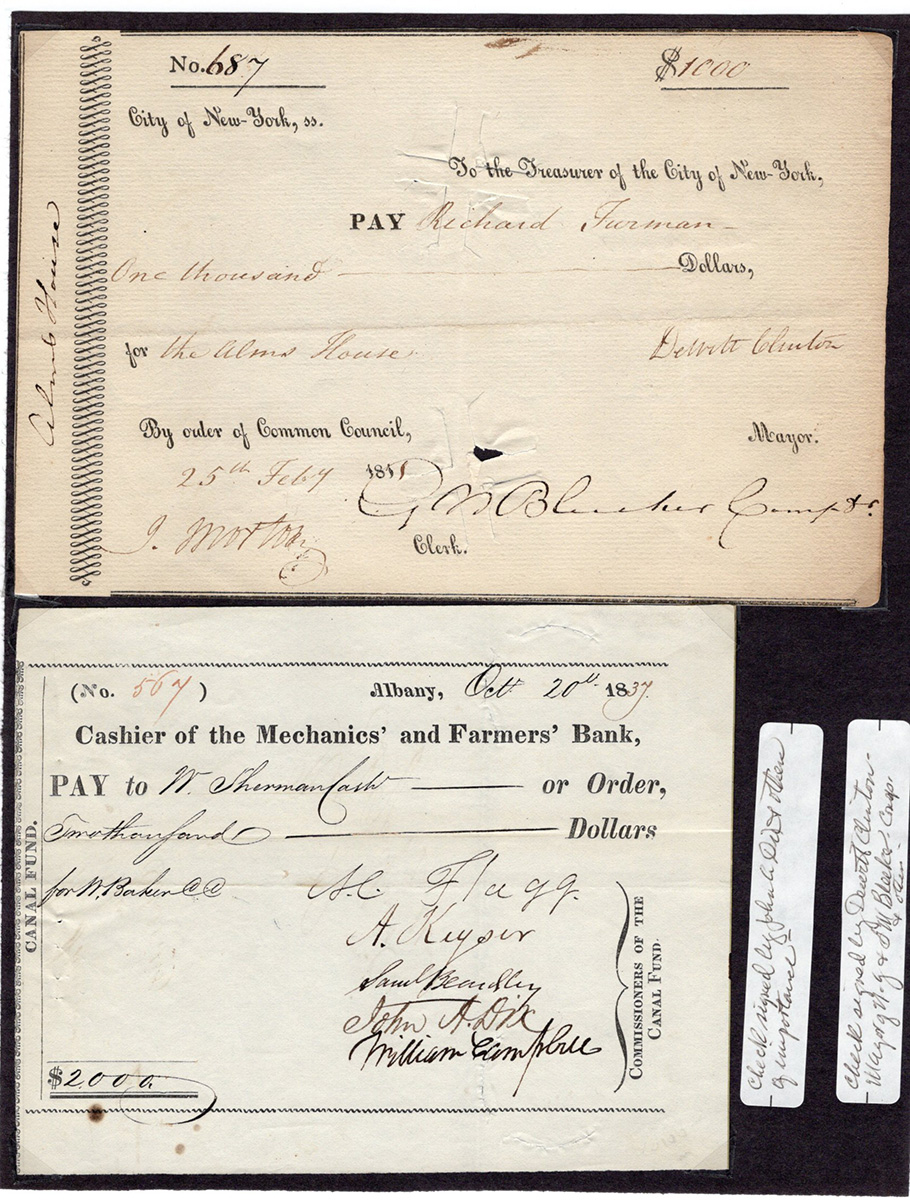 No. 687
$1000
City of New-York, ss.
To the Treasurer of the City of New-York,
PAY Richard Furman
One thousand Dollars,
for the Alms House.
DeWitt Clinton
By order of Common Council,
Mayor.
25th Feby 1811
G N Bleecker Comptr.
J. Morton
Clerk.
Alms House
(No. 567)
Albany, Oct 20th 1837.
Cashier of the Mechanics' and Farmers' Bank,
PAY to W. Sherman Cash or Order,
Two thousand Dollars
for W. Barker
A. C. Flagg.
A. Keyser
Saml Beardsley
John A. Dix
William Campbell
$2000.
CANAL FUND.
COMMISSIONERS OF THE
CANAL FUND.
Check signed by John A. Dix & others
of importance
Check signed by Dewitt Clinton -
Mayor N.Y. & Bleeker